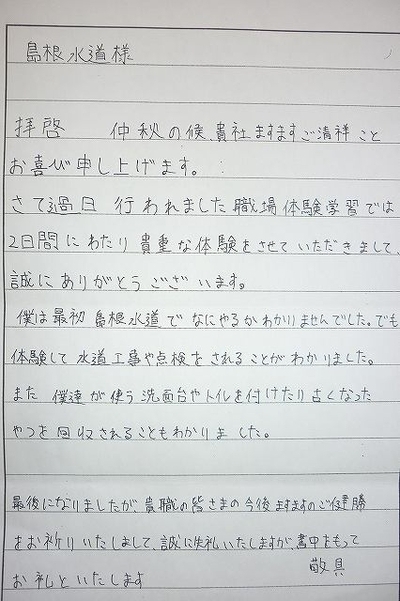 島根水道様
拝啓　仲秋の候貴社ますますご清祥こと
お喜び申し上げます。
さて過日 行われました職場体験学習では
2日間にわたり貴重な体験をさせていただきまして、
誠にありがとうございます。
僕は最初 島根水道でなにやるかわかりませんでした。でも
体験して水道工事や点検をされることがわかりました。
また 僕達が使う洗面台やトイレを付けたり古くなった
やつを回収されることもわかりました。
最後になりましたが、貴職の皆さまの今後ますますのご健勝
をお祈りいたしまして、誠に失礼いたしますが、書中をもって
お礼といたします
敬具